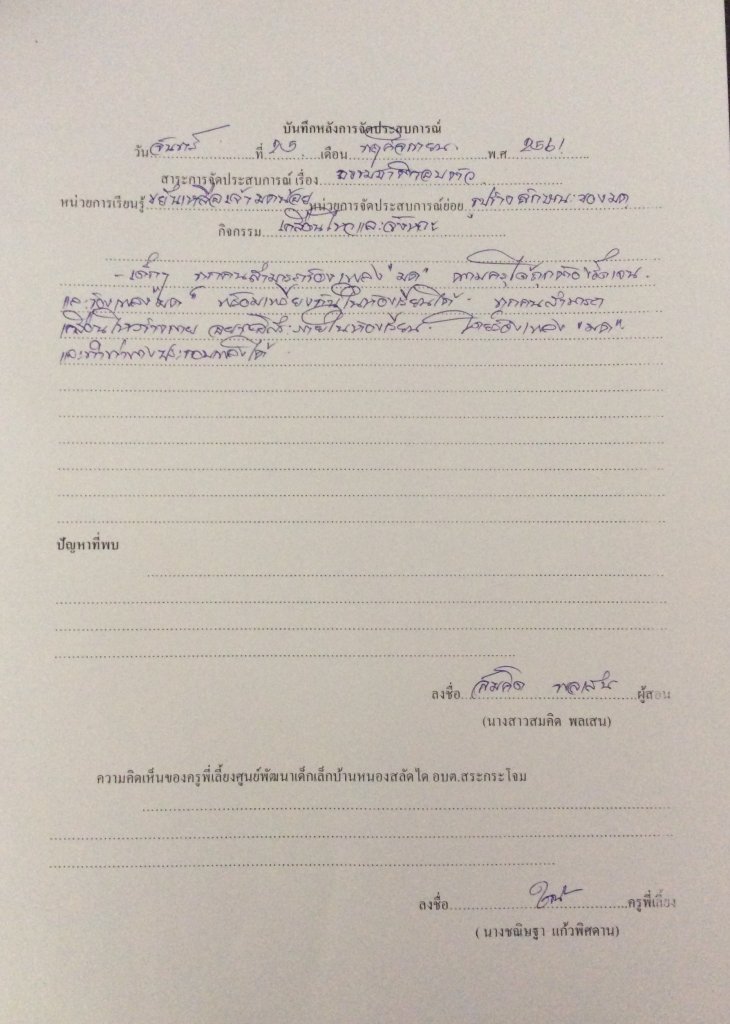 บันทึกหลังการจัดประสบการณ์
วัน จันทร์ ที่ เดือน พฤศจิกายน พ.ศ 2561
สาระการจัดประสบการณ์ เรื่อง ธรรมชาติรอบตัว
หน่วยการเรียนรู้ ขยันเหลือเจ้ามดน้อย หน่วยการจัดประสบการณ์ย่อย รูปร่างลักษณะของมด
กิจกรรม เคลื่อนไหวและจังหวะ
- เด็กๆ ทุกคนสามารถร้องเพลง "มด" ตามครูได้ถูกต้อง ชัดเจน
และร้องเพลง "มด" พร้อมเพรียงกันในห้องเรียนได้ ทุกคนสามารถ
เคลื่อนไหวร่างกาย อย่างอิสระภายในห้องเรียน โดยร้องเพลง "มด"
และทำท่าทางประกอบเพลงได้
ปัญหาที่พบ
ลงชื่อ สมคิด พลเสน ผู้สอน
(นางสาวสมคิด พลเสน)
ความคิดเห็นของครูพี่เลี้ยงศูนย์พัฒนาเด็กเล็กบ้านหนองสลัดได อบต.สระกระโจม
ลงชื่อ ครูพี่เลี้ยง
( นางชณิษฐา แก้วพิศดาน)